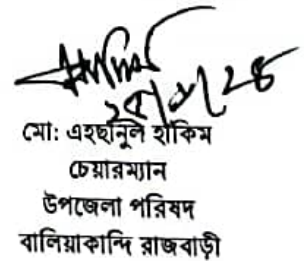 মো: এহছানুল হাকিম
চেয়ারম্যান
উপজেলা পরিষদ
বালিয়াকান্দি রাজবাড়ী